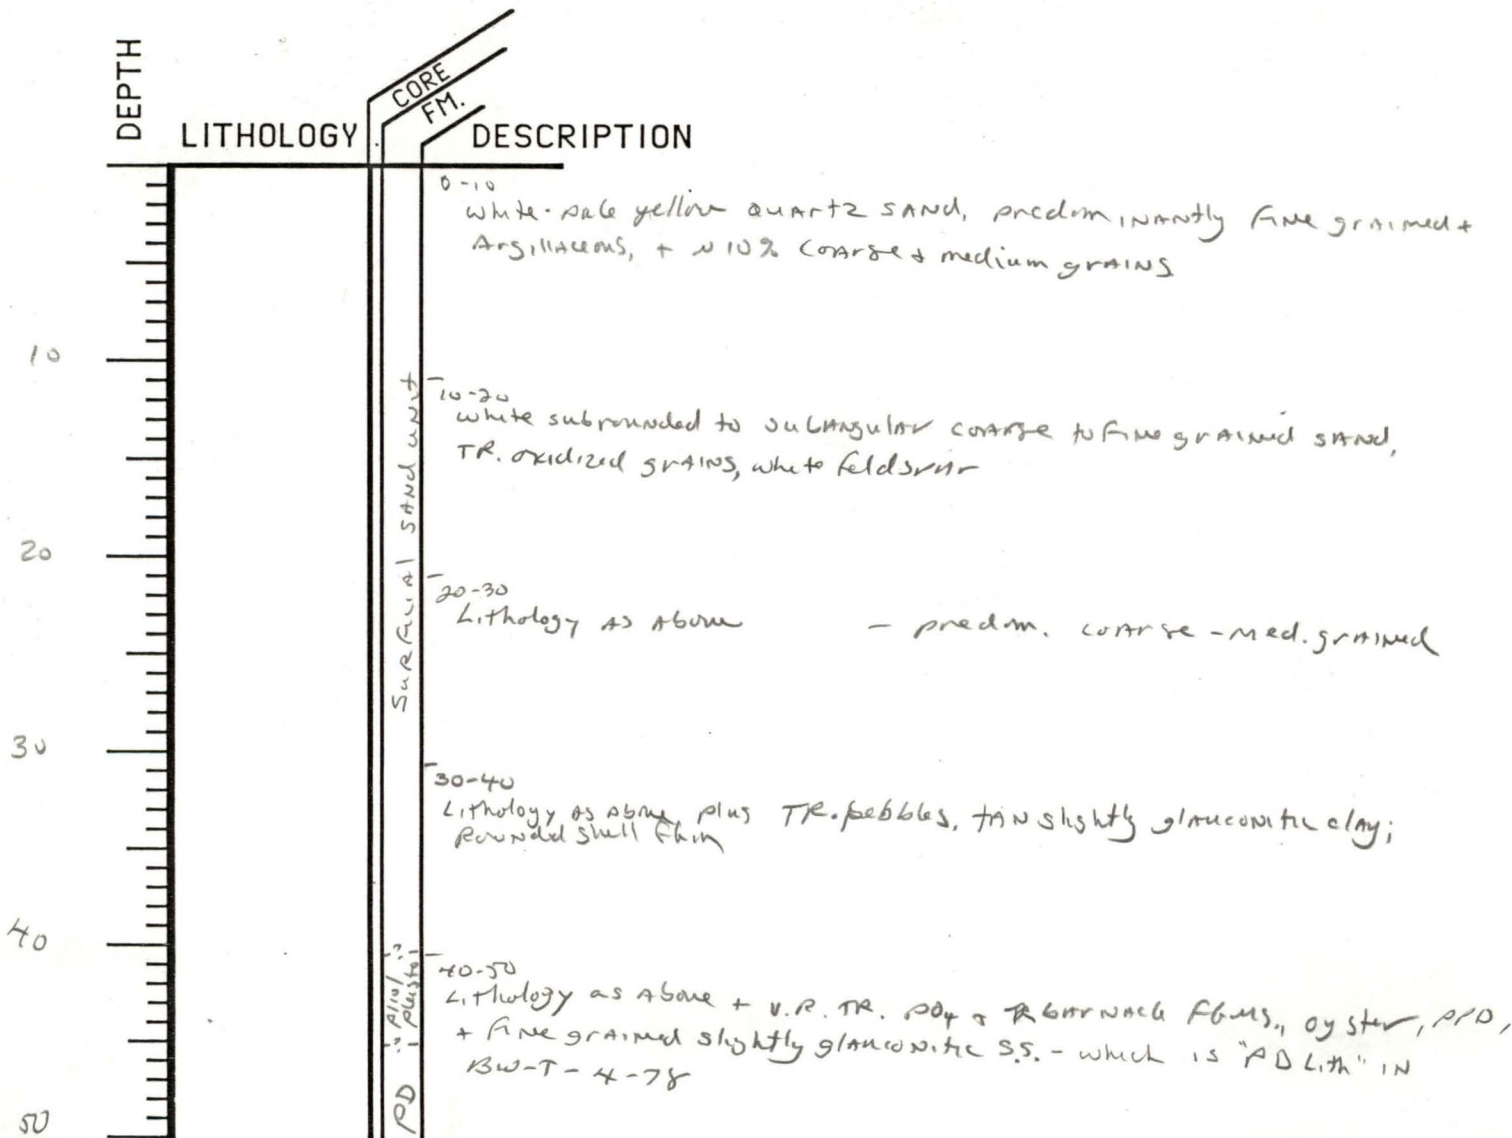 DEPTH
LITHOLOGY
CORE
FM.
DESCRIPTION
0-10
white-pale yellow quartz SAND, predominantly fine grained +
Argillaceous, + ~10% coarse + medium grains
10
10-20
white subrounded to subangular coarse to fine grained sand,
TR. oxidized grains, white feldspar
SURFICIAL SAND UNIT
20
20-30
Lithology as above - predom. coarse-med. grained
30
30-40
Lithology as above, plus TR. pebbles, tan slightly glauconitic clay;
Rounded shell
40
-?-
Plio/
Pleisto
-?-
40-50
Lithology as above + V.R. TR. PO4 + TR barnacle oyster, PPD,
+ fine grained slightly glauconitic S.S. - which is "PD Lith" in
BW-T-4-78
PD
50